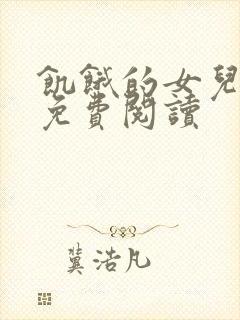 飢餓的女兒
免費閱讀
冀浩凡